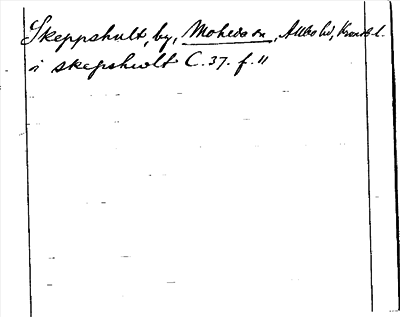 Skeppshult, by, Moheda sn, Allbo hd, Kronob. l.
i skepshwlt C. 37. f. 11